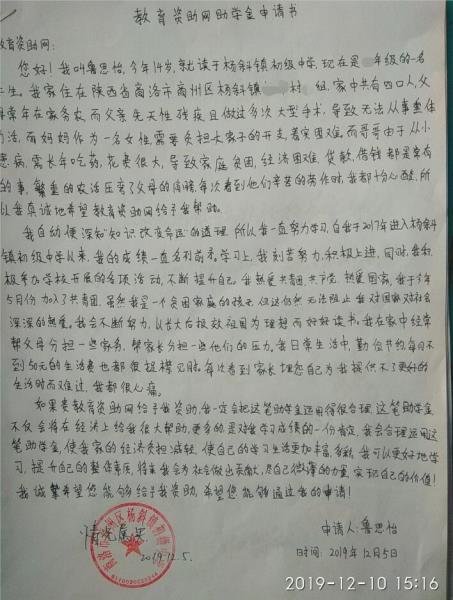 教育资助网助学金申请书
教育资助网：
您好！我叫鲁思怡，今年14岁，就读于杨斜镇初级中学，现在是 年级的一名
学生。我家住在陕西省商洛市商州区杨斜镇 村 组，家中共有四口人，父
母常年在家务农，而父亲先天性残疾且做过多次大型手术，导致无法从事重体
力活，而妈妈作为一名女性，需要负担大家子的开支，着实困难，而哥哥由于从小
患病，需长年吃药，花费很大，导致家庭贫困，经济困难，贷款，借钱都是常有
的事，繁重的农活压弯了父母的 ，每次看到他们辛苦的劳作时，我都十分心酸，所
以我真诚地希望教育资助网给予我帮助。
我自幼便深知"知识改变命运"的道理，所以我一直努力学习，自我于2017年进入杨斜
镇初级中学以来，我的成绩一直名列前茅。学习上，我刻苦努力，积极上进，同时，我积
极参加学校开展的各项活动，不断提升自己。我热爱共青团，共产党，热爱国家，我于今年
5月份加入了共青团，虽然我是一个贫困家庭的孩子，但这仍然无法阻止我对国家对社会
深深的热爱。我会不断努力，以长大后报效祖国为理想而好好读书。我在家中经常
帮父母分担一些家务，帮家长分担一些他们的压力。我日常生活中，勤俭节约，每月不
到50元的生活费也都很 ，每次看到家长埋怨自己为我提供不了更好的
生活时而难过，我都很心痛。
如果贵教育资助网给予我资助，我一定会把这笔助学金运用得很合理，这笔助学金
不仅会将在经济上给我很大帮助，更多的是对我学习成绩的一份肯定，我会合理运用这
笔助学金，使我家的经济负担减轻，使自己的学习生活更加丰富多彩，我可以更好地学
习，提升自己的整体素质，将来我会为社会做出贡献，尽自己微薄的力量，实现自己的价值！
我诚挚希望您能够给予我资助，希望您能够通过我的申请！
情况属实
2019.12.5.
申请人：鲁思怡
时间：2019年12月5日
2019-12-10 15:16